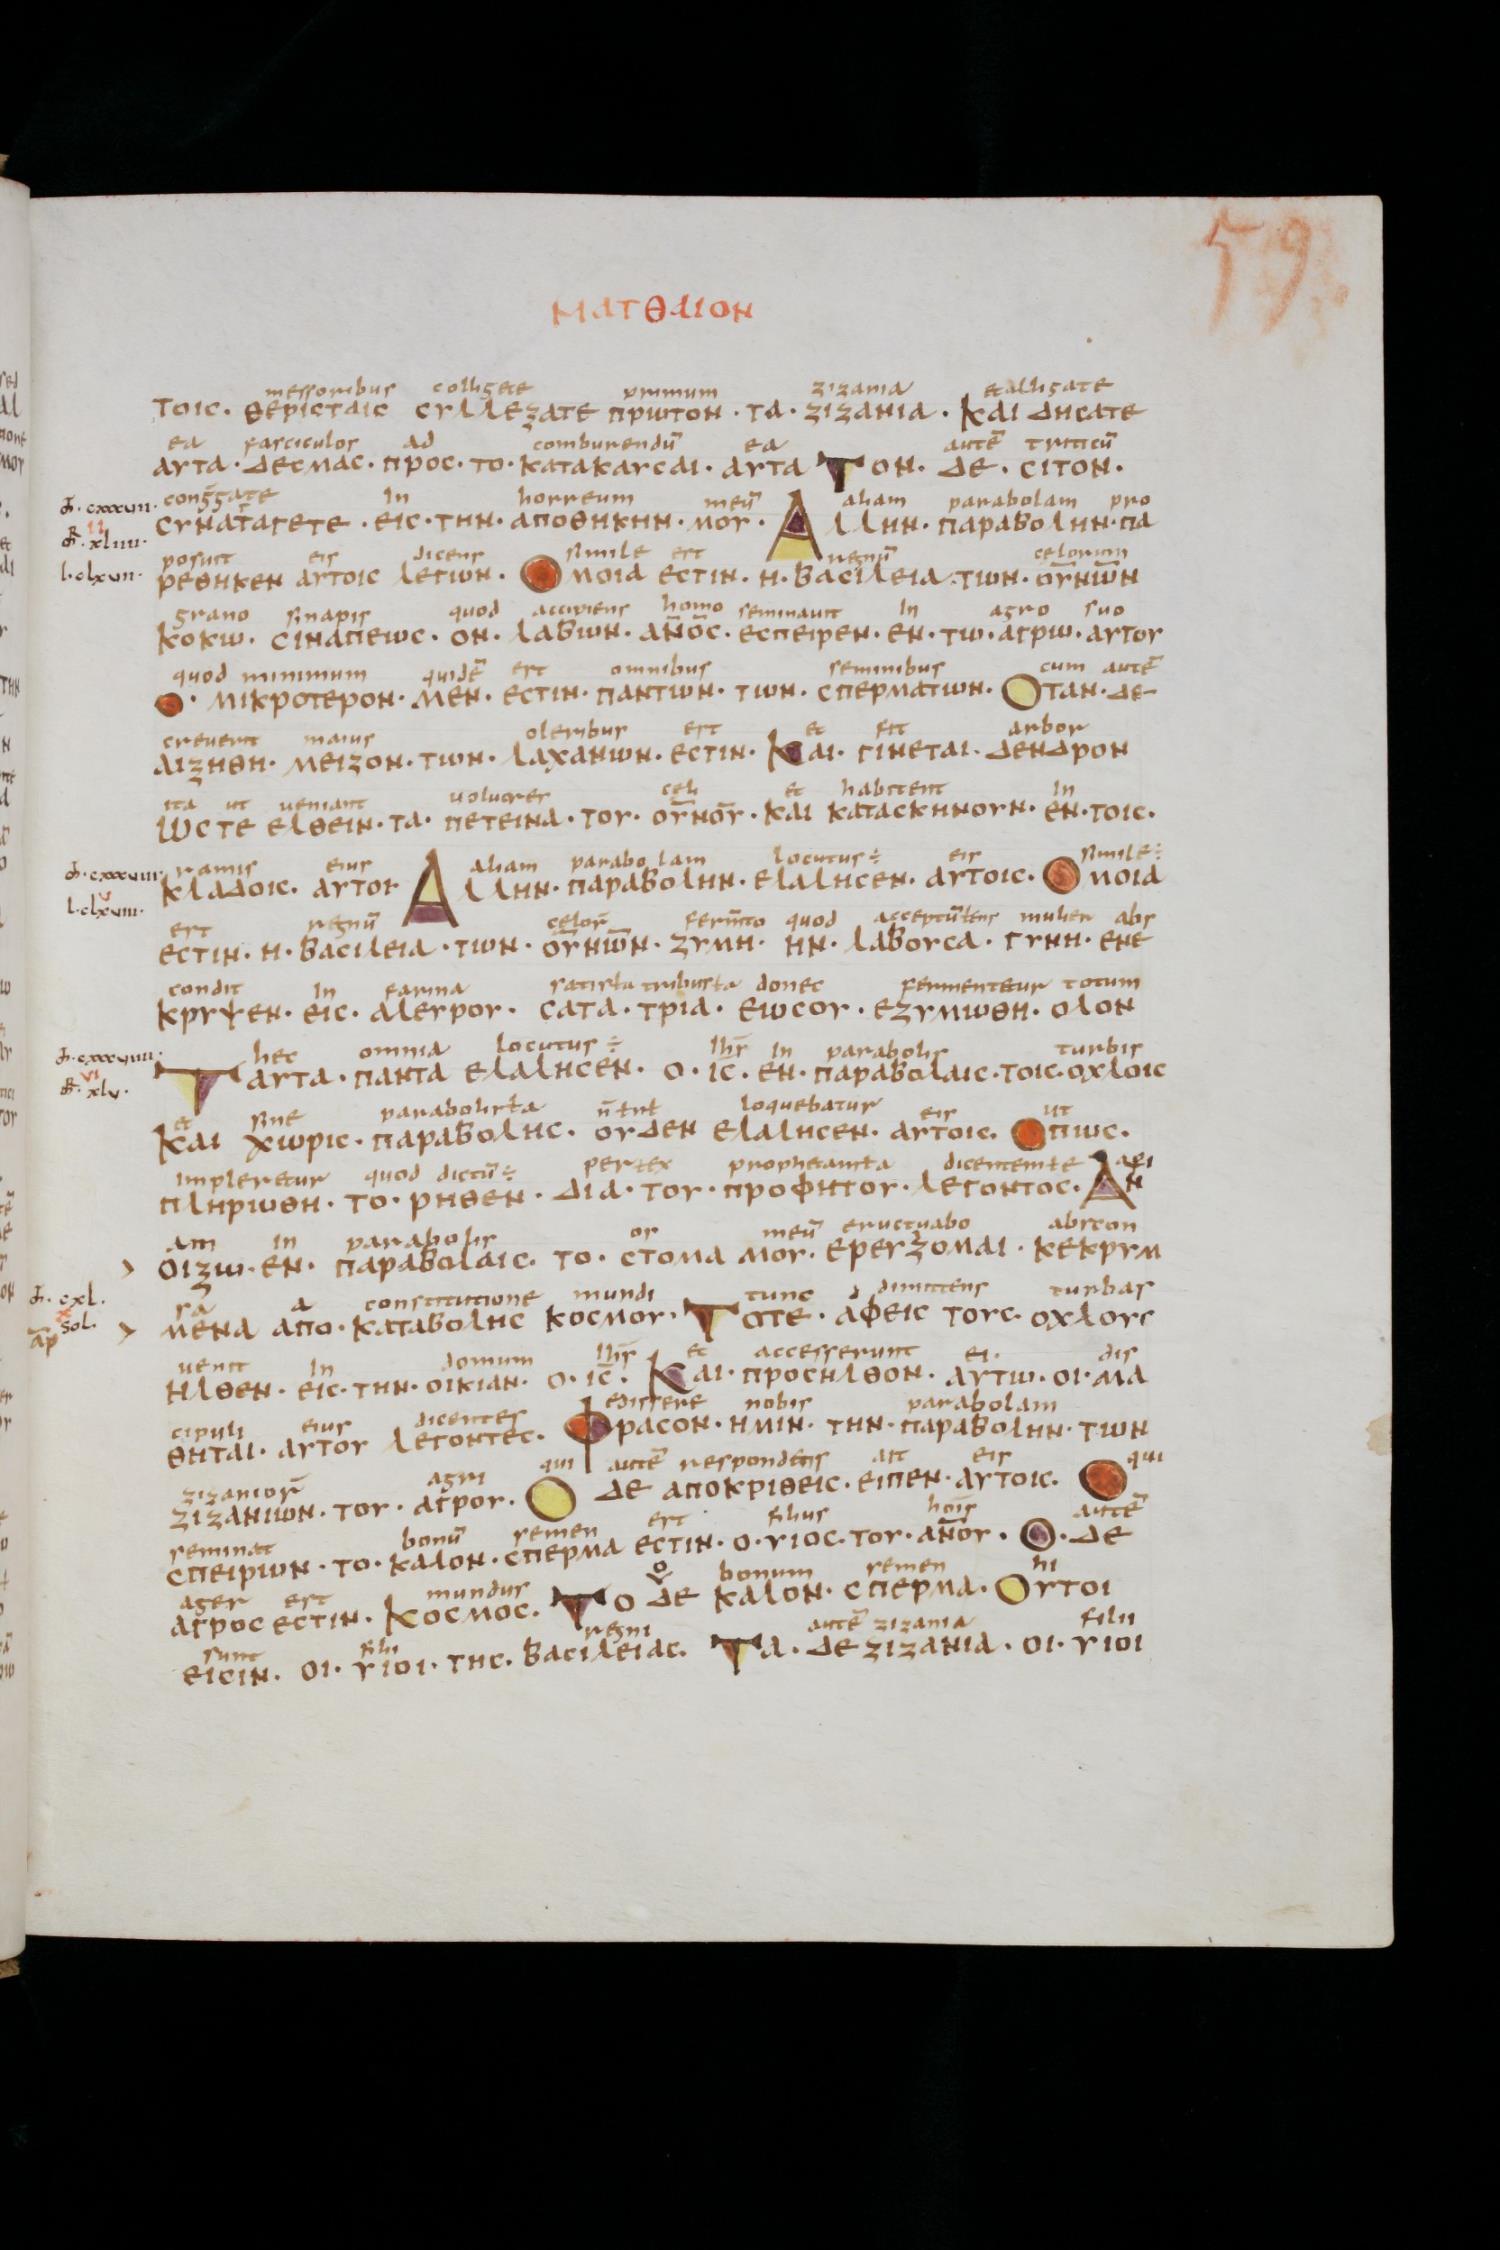 59
ΜΑΤΘΑΙΟΝ
messoribus colligete primum zizania et alligate
ΤΟΙC· ΘΕΡΙCΤΑΙC CΥΛΛΕΖΑΤΕ ΠΡΩΤΟΝ · ΤΑ · ΖΙΖΑΝΙΑ · ΚΑΙ ΔΗCΑΤΕ
ea fasciculos ad comburendū ea autē triticū
ΑΥΤΑ · ΔΕCΜΑC · ΠΡΟC · ΤΟ · ΚΑΤΑΚΑΥCΑΙ · ΑΥΤΑ ΤΟΝ · ΔΕ · CΙΤΟΝ ·
cong̅gate in horreum meū aliam parabolam pro
CΥΝΑΓΑΓΕΤΕ · ΕΙC · ΤΗΝ · ΑΠΟΘΗΚΗΝ · ΜΟΥ · ΑΛΛΗΝ · ΠΑΡΑΒΟΛΗΝ · ΠΑ
posuit eis dicens simile est regnū celorum
ΡΕΘΗΚΕΝ ΑΥΤΟΙC ΛΕΓΩΝ · ΟΜΟΙΑ ΕCΤΙΝ · Η · ΒΑCΙΛΕΙΑ · ΤΩΝ · ΟΥ̅ΝΩ̅Ν
grano sinapis quod accipiens homo seminauit in agro suo
ΚΟΚΩ · CΙΝΑΠΕΩC · ΟΝ · ΛΑΒΩΝ · ΑΝ̅ΟC · ΕCΠΕΙΡΕΝ · ΕΝ · ΤΩ · ΑΓΡΩ · ΑΥΤΟΥ
quod minimum quidē est omnibus seminibus cum autē
Ο · ΜΙΚΡΟΤΕΡΟΝ · ΜΕΝ · ΕCΤΙΝ · ΠΑΝΤΩΝ · ΤΩΝ · CΠΕΡΜΑΤΩΝ · ΟΤΑΝ · ΔΕ
creuerit maius oleribus est et fit arbor
ΑΙΖΗΘΗ · ΜΕΙΖΟΝ · ΤΩΝ · ΛΑΧΑΝΩΝ · ΕCΤΙΝ · ΚΑΙ · ΓΙΝΕΤΑΙ · ΔΕΝΔΡΟΝ
ita ut ueniant uolucres celi et habitent in
ΩCΤΕ ΕΛΘΕΙΝ · ΤΑ · ΠΕΤΕΙΝΑ · ΤΟΥ · ΟΥ̅ΝΟ̅Υ · ΚΑΙ ΚΑΤΑCΚΗΝΟΥΝ · ΕΝ · ΤΟΙC ·
ramis eius aliam parabolam locutus÷ eis simile÷
ΚΛΑΔΟΙC · ΑΥΤΟΥ ΑΛΛΗΝ · ΠΑΡΑΒΟΛΗΝ · ΕΛΑΛΗCΕΝ · ΑΥΤΟΙC · ΟΜΟΙΑ
est regnū celor̄ quod mulier abs
ΕCΤΙΝ · Η · ΒΑCΙΛΕΙΑ · ΤΩΝ · ΟΥ̅ΝΩ̅Ν · ΖΥΜΗ · ΗΝ · ΛΑΒΟΥCΑ · ΓΥΝΗ · ΕΝΕ
condit in farina donec fermentetur totum
ΚΡΥΨΕΝ · ΕΙC · ΑΛΕΥΡΟΥ · CΑΤΑ · ΤΡΙΑ · ΕΩCΟΥ · ΕΖΥΜΩΘΗ · ΟΛΟΝ
hec omnia locutus÷ ihs̄ in parabolis turbis
ΤΑΥΤΑ · ΠΑΝΤΑ ΕΛΑΛΗCΕΝ · Ο · ΙC̅ · ΕΝ · ΠΑΡΑΒΟΛΑΙC · ΤΟΙC · ΟΧΛΟΙC
et sine loquebatur eis ut
ΚΑΙ ΧΩΡΙC · ΠΑΡΑΒΟΛΗC · ΟΥΔΕΝ ΕΛΑΛΗCΕΝ · ΑΥΤΟΙC · ΟΠΩC ·
impleretur quod dictū÷ aperi
ΠΛΗΡΩΘΗ · ΤΟ · ΡΗΘΕΝ · ΔΙΑ · ΤΟΥ · ΠΡΟΦΗΤΟΥ · ΛΕΓΟΝΤΟC · ΑΝ
am in parabolis os meū eructuabo abscon
ΟΙΖΩ · ΕΝ · ΠΑΡΑΒΟΛΑΙC · ΤΟ · CΤΟΜΑ ΜΟΥ · ΕΡΕΥΖΟΜΑΙ · ΚΕΚΡΥΜ
sa a constitutione mundi tunc dimittens turbas
ΜΕΝΑ ΑΠΟ · ΚΑΤΑΒΟΛΗC ΚΟCΜΟΥ · ΤΟΤΕ · ΑΦΕΙC ΤΟΥC · ΟΧΛΟΥC
uenit in domum ihs̄ et accesserunt ei · dis
ΗΛΘΕΝ · ΕΙC · ΤΗΝ · ΟΙΚΙΑΝ · Ο · ΙC̅ · ΚΑΙ · ΠΡΟCΗΛΘΟΝ · ΑΥΤΩ · ΟΙ · ΜΑ
cipuli eius dicentes edissere nobis parabolam
ΘΗΤΑΙ · ΑΥΤΟΥ ΛΕΓΟΝΤΕC · ΦΡΑCΟΝ · ΗΜΙΝ · ΤΗΝ · ΠΑΡΑΒΟΛΗΝ · ΤΩΝ
zizanior̄ agri qui autē respondens ait eis qui
ΖΙΖΑΝΙΩΝ · ΤΟΥ · ΑΓΡΟΥ · Ο ΔΕ ΑΠΟΚΡΙΘΕΙC · ΕΙΠΕΝ · ΑΥΤΟΙC · Ο
seminat bonū semen est filius hois̄ autē
CΠΕΙΡΩΝ · ΤΟ · ΚΑΛΟΝ · CΠΕΡΜΑ ΕCΤΙΝ · Ο · ΥΙΟC · ΤΟΥ · ΑΝ̅ΟΥ · Ο · ΔΕ
ager est mundus bonum semen hi
ΑΓΡΟC ΕCΤΙΝ · ΚΟCΜΟC · ΤΟ ΔΕ ΚΑΛΟΝ · CΠΕΡΜΑ · ΟΥΤΟΙ
sunt filii regni autē zizania filii
ΕΙCΙΝ · ΟΙ · ΥΙΟΙ · ΤΗC · ΒΑCΙΛΕΙΑC · ΤΑ · ΔΕ ΖΙΖΑΝΙΑ · ΟΙ · ΥΙΟΙ